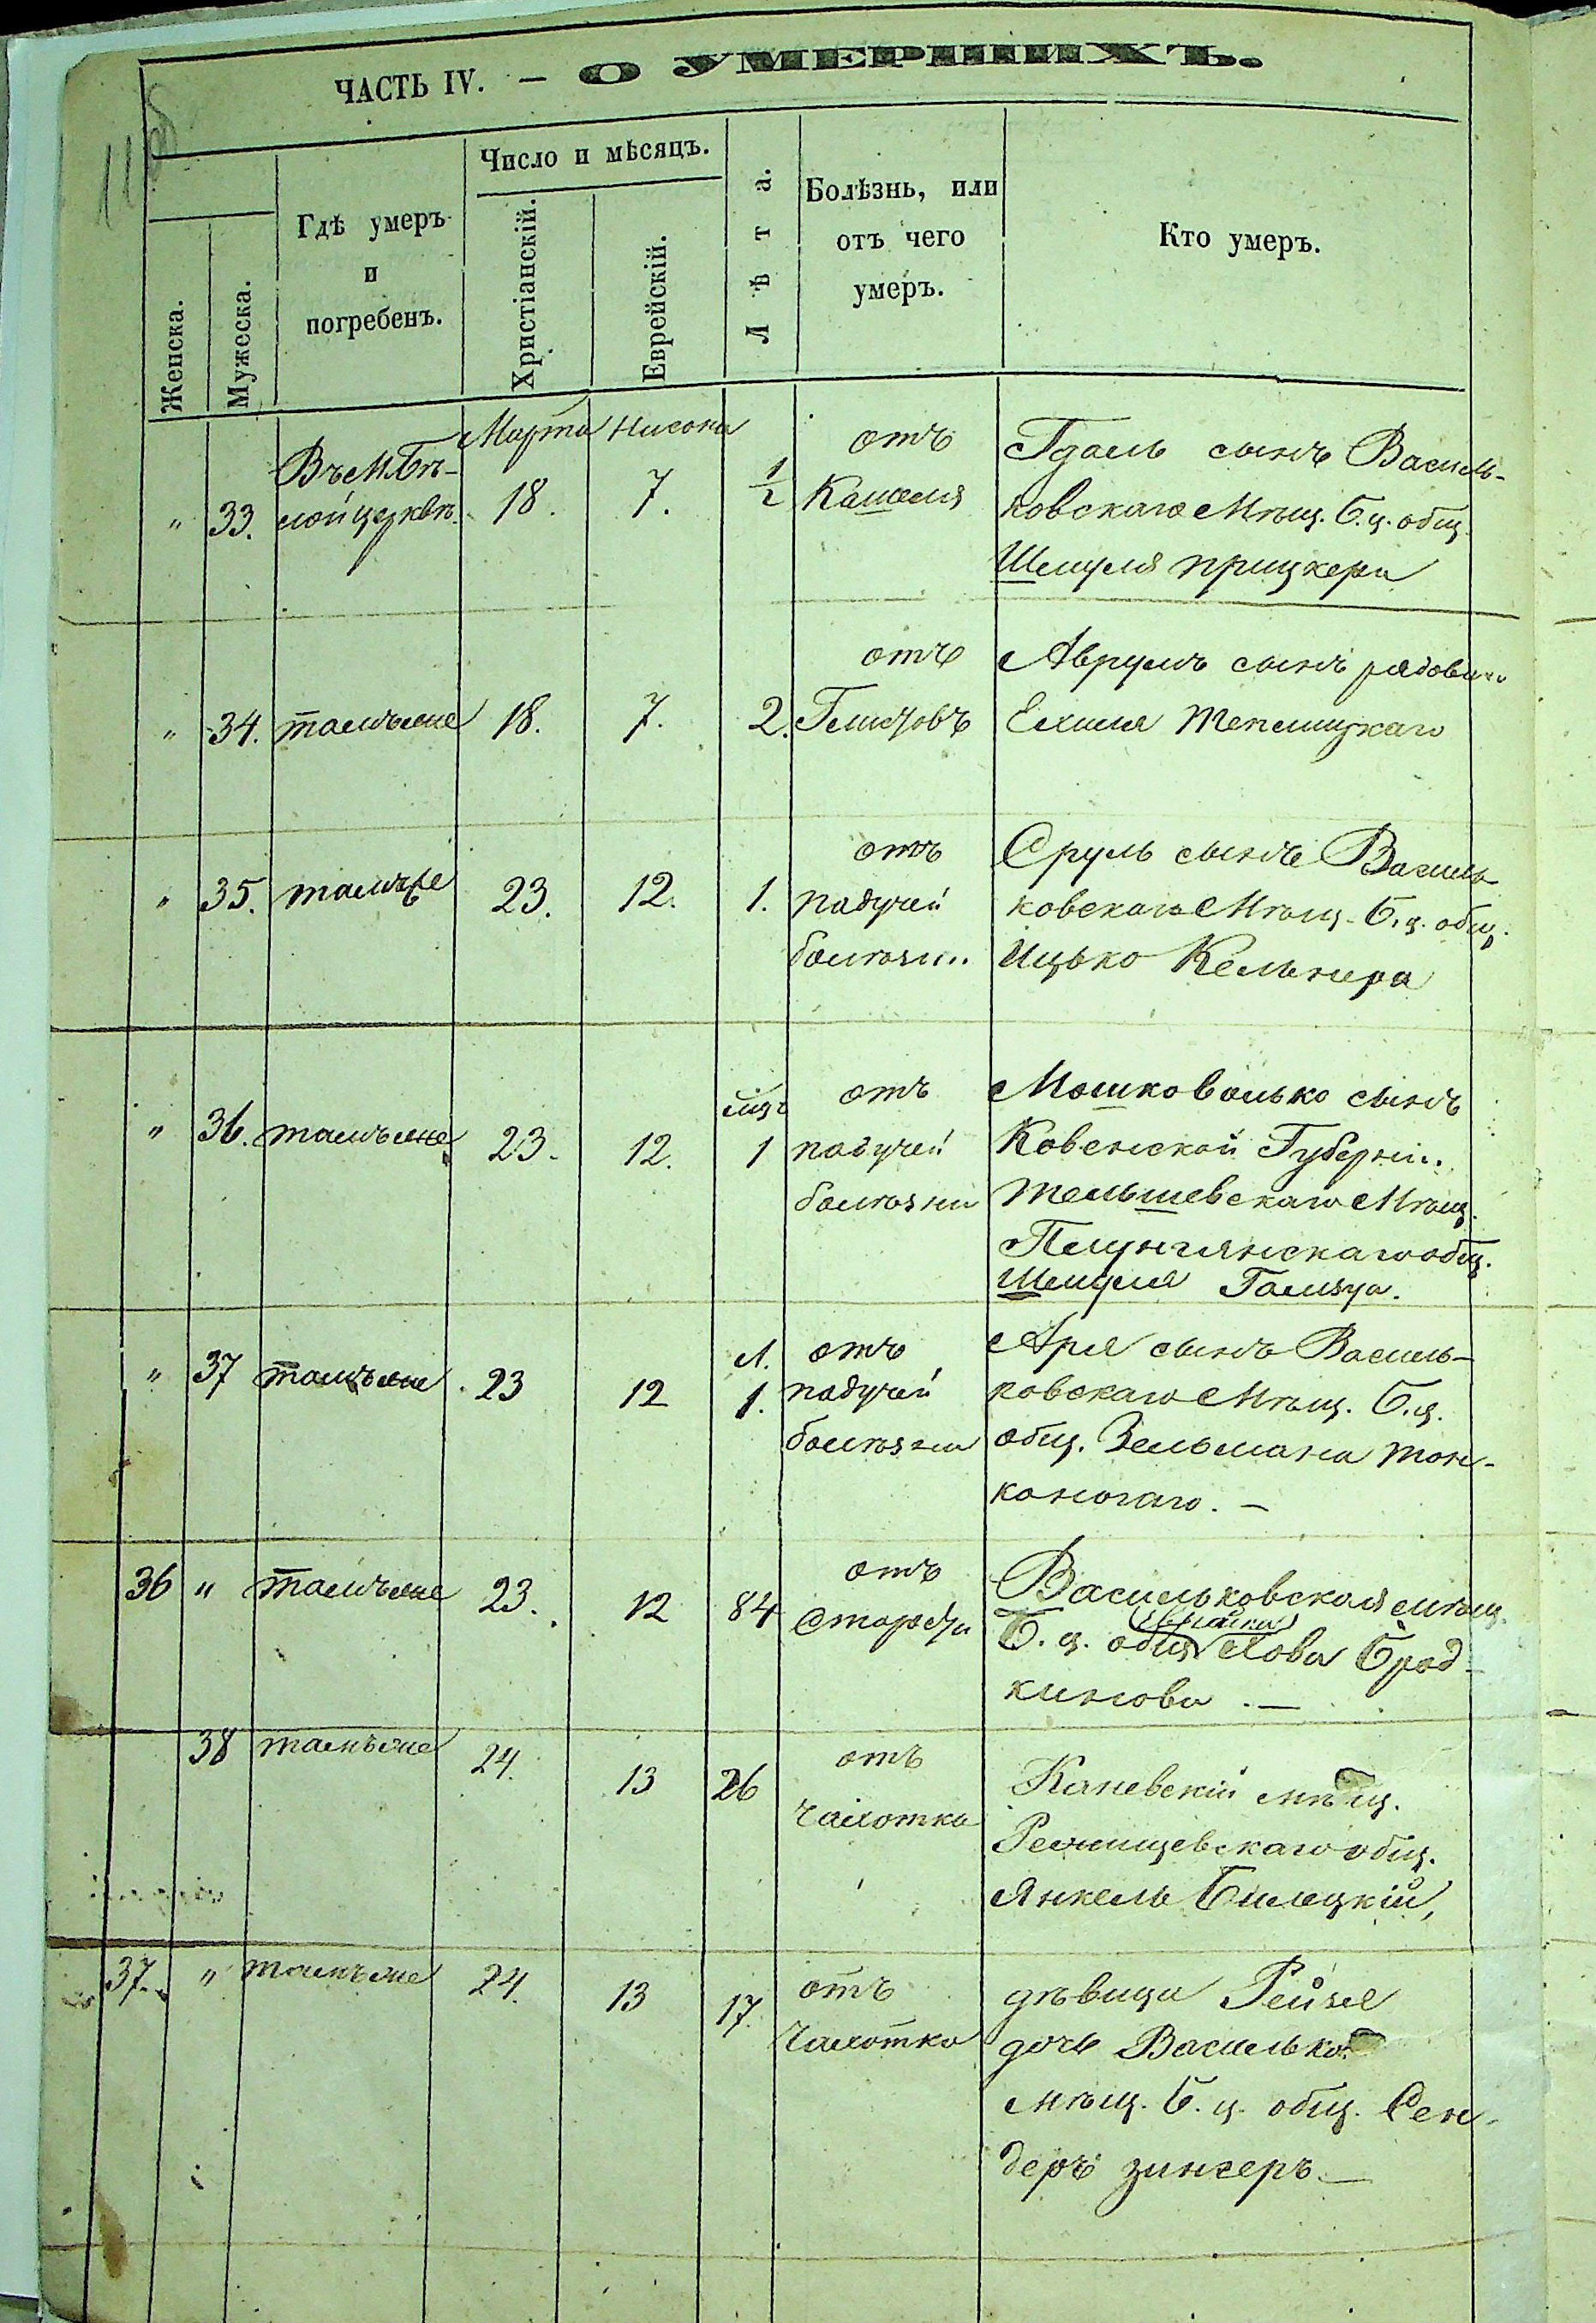 ЧАСТЬ IV. — О УМЕРШИХЪ.
Женска.
Мужеска.
Гдѣ умеръ
и
погребенъ.
Число и мѣсяцъ.
Христіанскій.
Еврейскій.
Лѣта.
Болѣзнь, или
отъ чего
умеръ.
Кто умеръ.
Марта Нисона
" 33. Въ М. Бѣ-
лой церквѣ. 18. 7. 1/2
отъ
Кашеля
Гдаль сынъ Василь-
ковскаго Мѣщ. Б. ц. общ.
Шмуля прицкера
" 34. тамъже 18. 7. 2.
отъ
Аврумъ сынъ рядоваго
Ехиля
" 35. тамъже 23. 12. 1.
отъ
падучей
болѣзни
Сруль сынъ Василь-
ковскаго Мѣщ. Б. ц. общ.
Ицько Кельнера
" 36. тамъже 23. 12. мѣц 1
отъ
падучей
болѣзни
Мошко Волько сынъ
Ковенской Губерніи
Тельшевскаго Мѣщ.
Плунгянскаго общ.
Шмуля
" 37 тамъже 23 12 л. 1.
отъ
падучей
болѣзни
Аря сынъ Василь-
ковскаго Мѣщ. Б. ц.
общ. Зельмана тон-
коногаго. —
36 " тамъже 23. 12 84
отъ
Старости
Васильковская мѣщ.
Б. ц. общ. еврейка Хова Брод-
кинова. —
38 тамъже 24. 13 26
отъ
Чахотка
Каневскій мѣщ.
общ.
Янкель Билецкій,
37. " тамъже 24. 13 17.
отъ
Чахотка
дѣвица Рейзя
дочь Васильков.
мѣщ. Б. ц. общ. Сен-
деръ зингеръ —